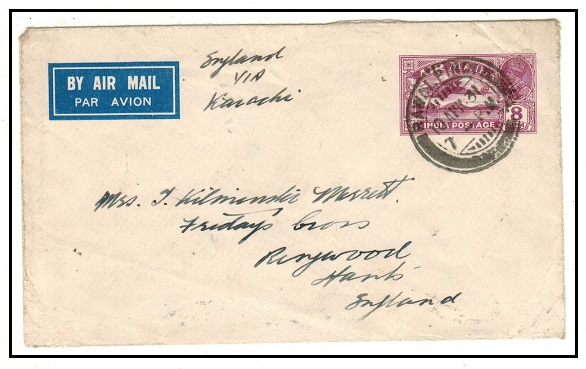 BY AIR MAIL
PAR AVION
England
VIA
Karachi
INDIA POSTAGE
8
Mrs. J. Kilminster Merrett.
Friday's Cross
Ringwood
Hants
England